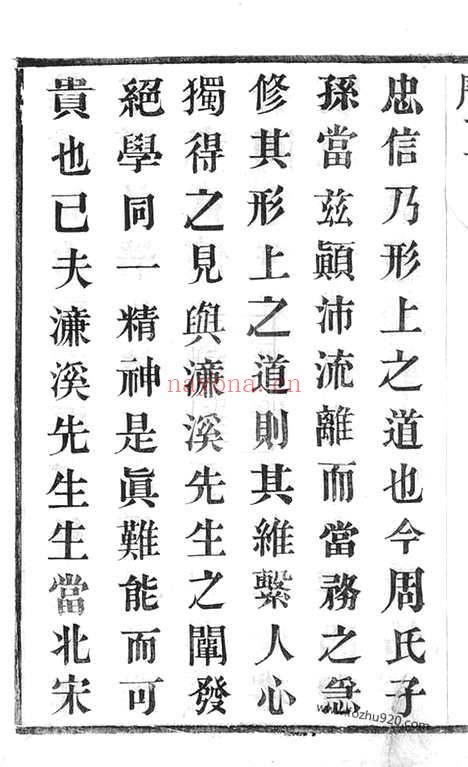 忠信乃形上之道也今周氏子
孫當茲顚沛流離而當務之急
修其形上之道則其維繫人心
獨得之見與濂溪先生之闡發
絕學同一精神是眞難能而可
貴也已夫濂溪先生生當北宋
nayona.cn
www.kozhu920.com